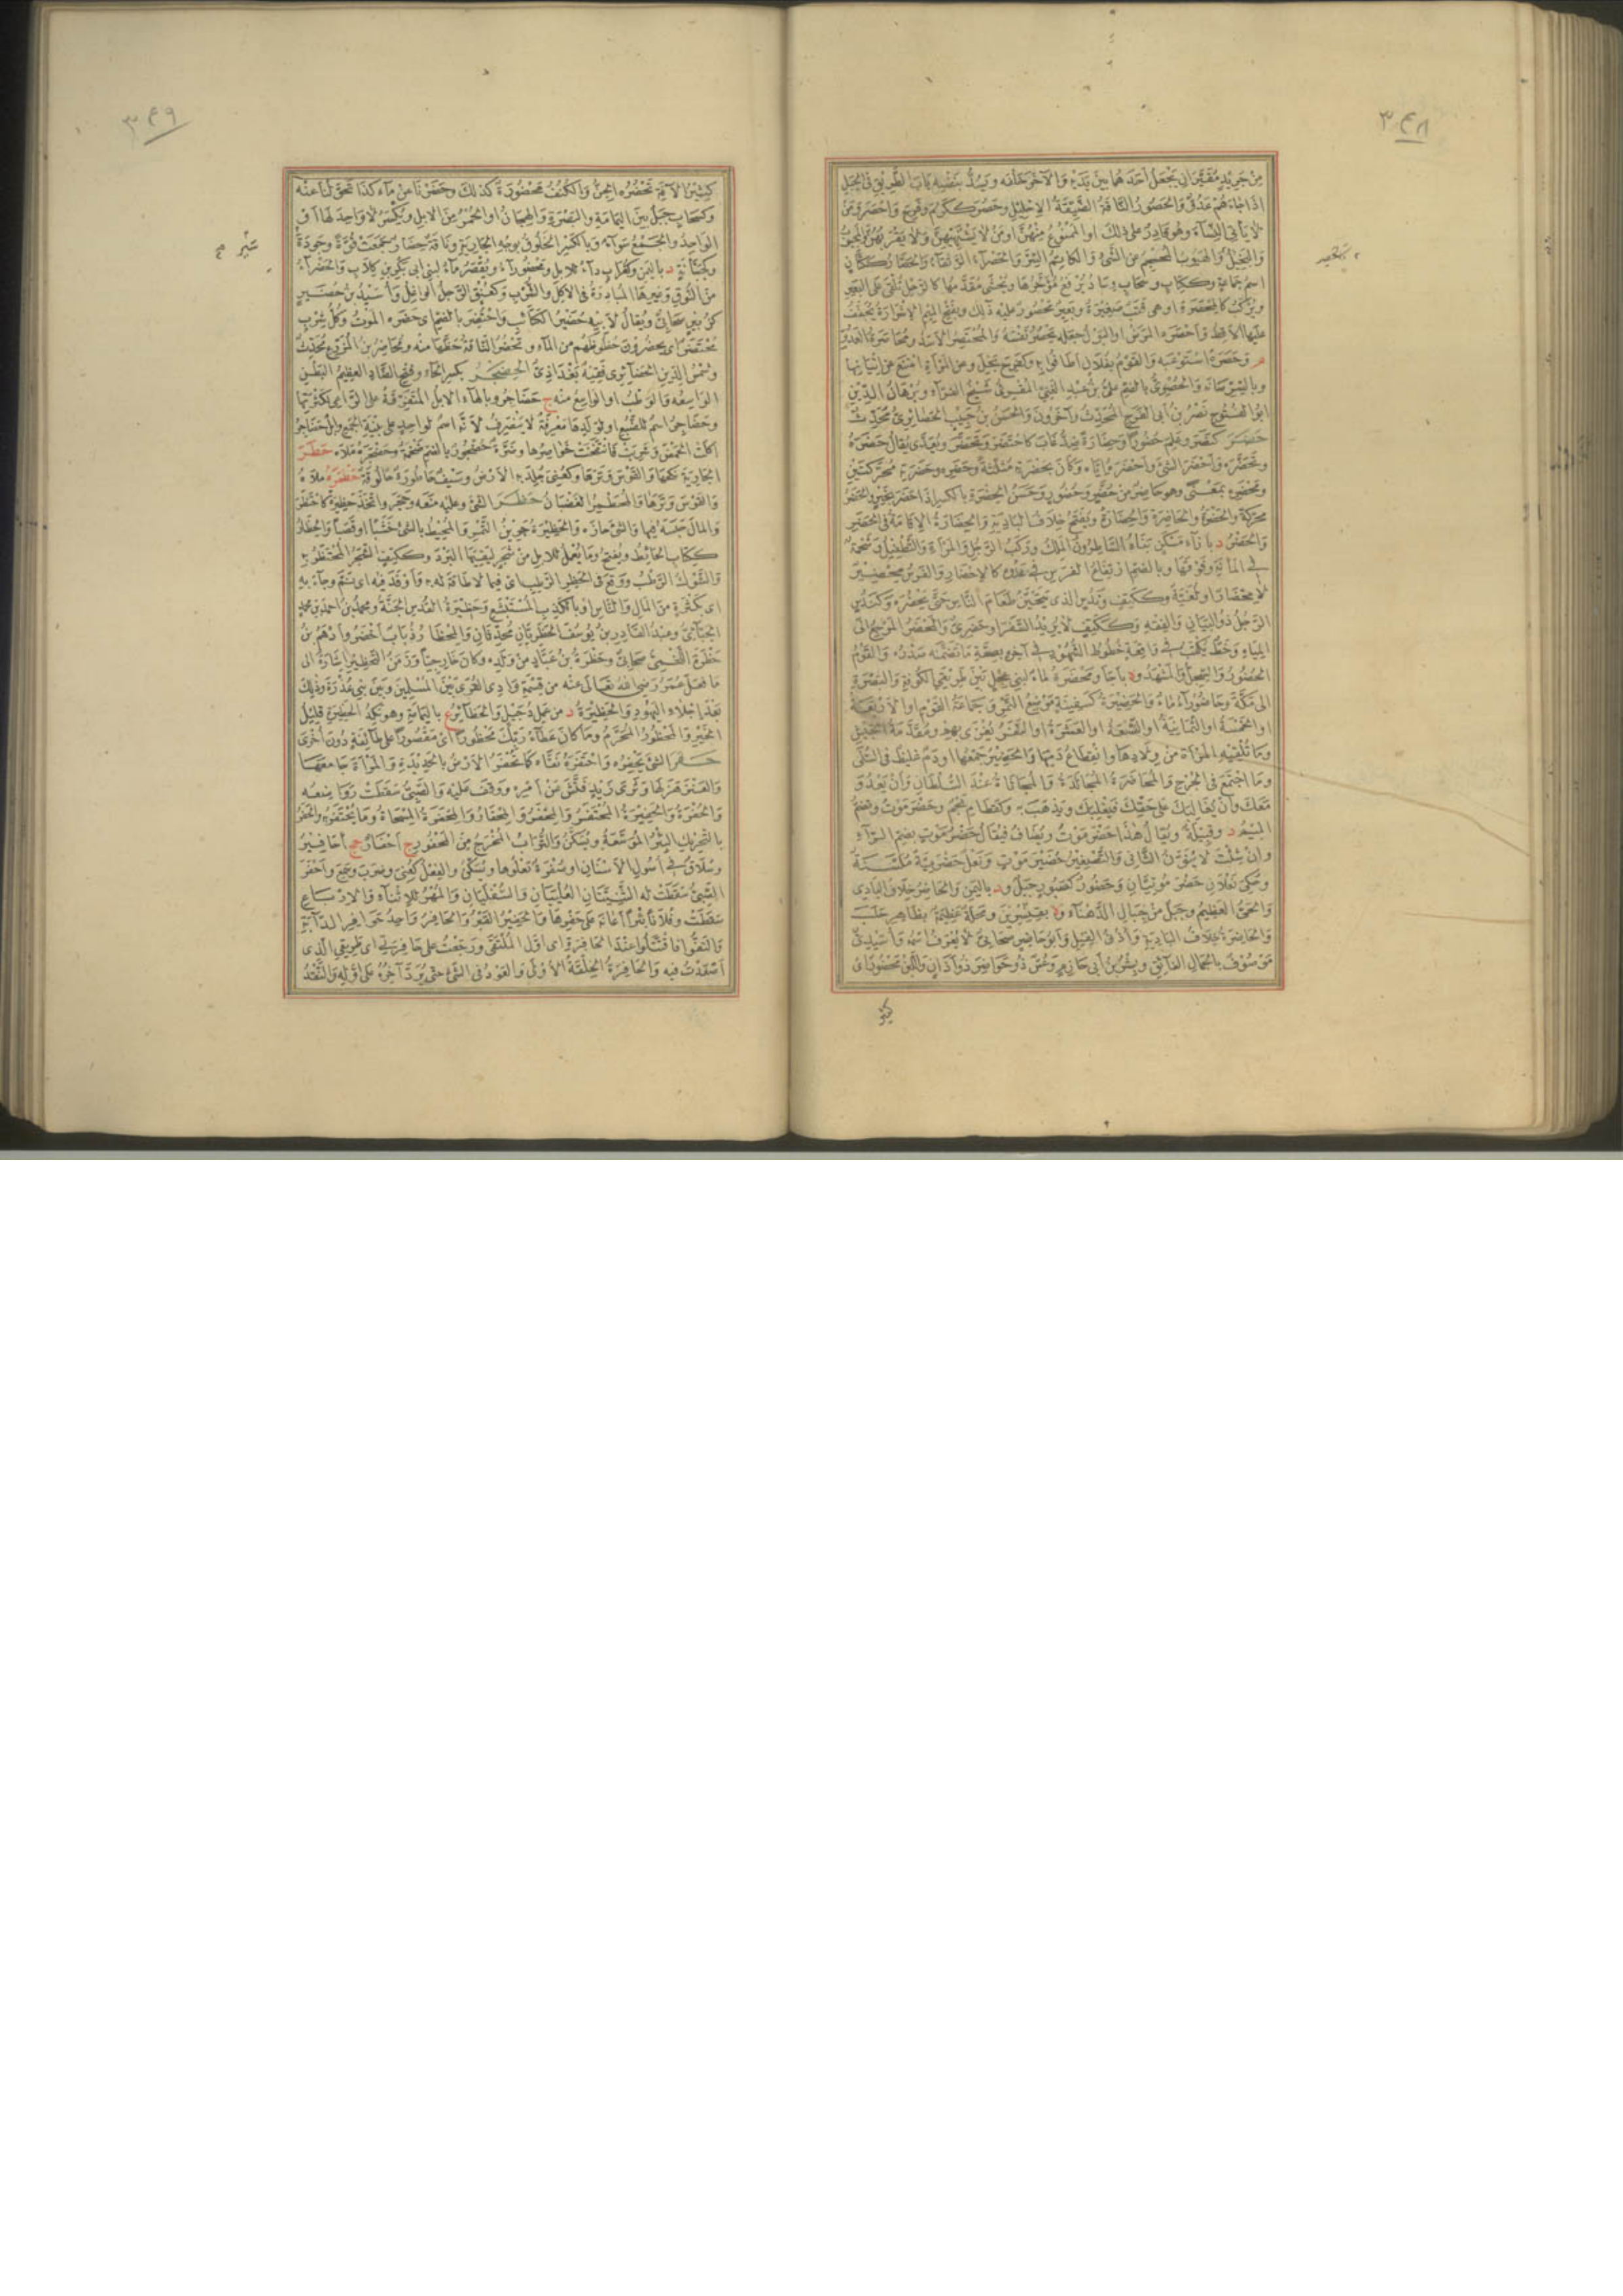 ٣٤٨
من جريد مقتران يجعل احدهما بين يديه والآخر خلفه ويسد بنفسه باب الطريق في الجبل
اذا جاءهم عدو والحصور الناقة الضيقة الاحليل وحصر ككرم وفرح واحصر ومن
لا يأتي النساء وهو قادر على ذلك او الممنوع منهن او من لا يشتهيهن ولا يقربهن والمجبوب
والبخيل والهيوب المحجم عن الشئ والكاتم السر
اسم جماعة وككتاب وسحاب وساد يرفع مؤخرها ويحشى مقدمها كالرحل يلقى على البعير
ويركب كالمحصرة او هى قتب صغيرة وبعير محصور عليه ذلك وبفتح الميم الاشرارة يجفف
عليها الاقط واحصره المرض او البول جعله يحصر نفسه والمحتصر الاسد ومحاصرة العدو
م وحصره استوعبه والقوم بفلان اطافوا به وكفرح بخل وعن المرأة امتنع عن اتيانها
وبالسر كتمه والحصري بالضم على بن عبد الغنى المقرئ شيخ القراء وبرهان الدين
ابو الفتوح نصر بن ابى الفرج المحدث وآخرون والحسن بن حبيب الحصائرى محدث
حضر كنصر وعلم حضورا وحضارة ضد غاب كاحتضر وتحضر ويعدى يقال حضره
وتحضره واحضر الشئ واحضره اياه وكان بحضرته مثلثة وحضره وحضرته محركتين
ومحضره بمعنى وهو حاضر من حضر وحضور وحسن الحضرة بالكسر اذا حضر بخير والحضر
محركة والحضرة والحاضرة والحضارة ويفتح خلاف البادية والحضارة الاقامة في الحضر
والحضر د بازاء مسكن بناه الساطرون الملك وركب الرجل والمرأة والتطفيل وشحمة
في المأنة وفوقها وبالضم ارتفاع الفرس في عدوه كالاحضار والفرس محضير
لا محضار او لغية وككتف وندس الذى يتحين طعام الناس حتى يحضره وكندس
الرجل ذو البيان والفقه وككتف لا يريد السفر او حضرى والمحضر المرجع الى
المياه وخط يكتب في واقعة خطوط الشهود في آخره بصحة ما تضمنه صدره والقوم
الحضور والسجل والمشهد وة باجأ ومحضرة ماء لبنى عجل بين طريقى الكوفة والبصرة
الى مكة وحاضوراء ماء والحضيرة كسفينة موضع التمر وجماعة القوم او الاربعة
او الخمسة او الثمانية او التسعة او العشرة او النفر يغزى بهم ومقدمة الجيش
وما تلقيه المرأة من ولادها وانقطاع دمها والحضير جمعها او دم غليظ في السلى
وما اجتمع في الجرح والمحاضرة المجالدة والمجاثاة عند السلطان وان يعدو
معك وان يغالبك على حقك فيغلبك ويذهب به وكقطام نجم وحضرموت وبضم
الميم د وقبيلة ويقال هذا حضرموت ويضاف فيقال حضرموت بضم الراء
وان شئت لا تنون الثانى والتصغير حضيرموت ونعل حضرمية ملسنة
وحكى نعلان حضرموتيتان وحضور كصبور جبل ود باليمن والحاضر خلاف البادى
والحى العظيم وجبل من جبال الدهناء وة بقنسرين ومحلة عظيمة بظاهر حلب
والحاضرة خلاف البادية واذن الفيل وابو حاضر صحابى لا يعرف اسمه واسيدى
موصوف بالجمال الفائق وبشر بن ابى حازم وعس ذو حواضر ذو آذان واللبن محضور اى
كثير
٣٤٩
كثير الآفة تحضره الجن والكنف محضورة كذلك وحضرنا عن ماء كذا تحولنا عنه
وكسحاب جبل بين اليمامة والبصرة والهجان او الحمر من الابل ويكسر لا واحد لها او
الواحد والجمع سواء وبالكسر الخلوق بوجه الجارية وناقة حضار جمعت قوة وجودة
وكجبانة د باليمن وكغراب داء للابل ومحضوراء ويقصر ماء لبنى ابى بكر بن كلاب والحضراء
من النوق وغيرها المبادرة في الاكل والشرب وكعنق الرجل الواغل واسيد بن حضير
كزبير صحابى ويقال لابيه حضير الكتائب واحتضر بالضم اى حضره الموت وكل شرب
محتضر اى يحضرون حظوظهم من الماء وتحضر الناقة حظها منه ومحاضر بن المورع محدث
وشمس الدين الحضائرى فقيه بغدادى الحضجر بكسر الحاء وفتح الضاد العظيم البطن
الواسعه والوطب او الواسع منه ج حضاجر وبالهاء الابل المتفرقة على الراعى لكثرتها
وحضاجر اسم للضبع او لولدها معرفة لا ينصرف لانه اسم لواحد على بنية الجمع وابل حضاجر
اكلت الحمض وشربت فانتفخت خواصرها
الجارية نكحها والقوس وترها وكعنى جلد به الارض وسيف حاطورة
والقوس وترها والمحظير الغضبان حظر الشئ وعليه منعه وحجر واتخذ حظيرة كاحتظر
والمال حبسه فيها والشئ حازه والحظيرة جرين التمر والمحيط بالشئ خشبا او قصبا والحظار
ككتاب الحائط ويفتح وما يعمل للابل من شجر ليقيها البرد وككتف الشجر المحتظر به
والشوك الرطب ووقع في الحظر الرطب اى فيما لا طاقة له به واوقد فيه اى نم وجاء به
اى بكثرة من المال والناس او بالكذب المستشنع وحظيرة القدس الجنة ومحمد بن احمد بن محمد
الجبائى وعبد القادر بن يوسف الحظريان محدثان والمحظار ذباب اخضر وادهم بن
حظرة اللخمى صحابى وحظرة بن عباد من ولده وكان خارجيا وزمن التحظير اشارة الى
ما فعل عمر رضى الله تعالى عنه من قسمة وادى القرى بين المسلمين وبين بنى عذرة وذلك
بعد اجلاء اليهود والحظيرة د من عمل دجيل والحظائر ع باليمامة وهو نكد الحظيرة قليل
الخير والمحظور المحرم وما كان عطاء ربك محظورا اى مقصورا على طائفة دون اخرى
حفر الشئ يحفره واحتفره نقاه كما تحفر الارض بالحديدة والمرأة جامعها
والعنز هزلها وثرى زيد فتش عن امره ووقف عليه والصبى سقطت رواضعه
والحفرة والحفيرة المحتفر والمحفر والمحفار والمحفرة المسحاة وما يحتفر به والحفر
بالتحريك البئر الموسعة ويسكن والتراب المخرج من المحفور ج احفار جج احافير
وسلاق في اصول الاسنان او صفرة تعلوها ويسكن والفعل كعنى وضرب وسمع واحفر
الصبى سقطت له الثنيتان العلييان والسفليان والمهر للاثناء والارباع
سقطت وفلانا بئرا اعانه على حفرها والحفير القبر والحافر واحد حوافر الدابة
والتقوا فاقتتلوا عند الحافرة اى اول الملتقى ورجعت على حافرتى اى طريقى الذى
اصعدت فيه والحافرة الخلقة الاولى والعود في الشئ حتى يرد آخره على اوله والنقد